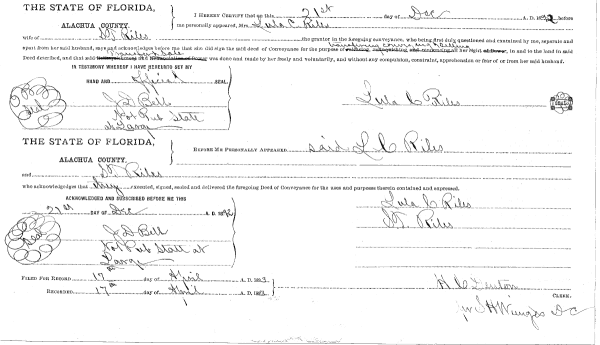 THE STATE OF FLORIDA,
ALACHUA COUNTY.
I HEREBY CERTIFY that on this 21st day of Dec A. D. before
me personally appeared, Mrs. Lula C. Riles
wife of Riles the grantor in the foregoing conveyance, who being first duly questioned and examined by me, separate and
apart from her said husband, says and acknowledges before me that she did sign the said deed of Conveyance for the purpose of her right, in and to the land in said
Deed described, and that said was done and made by her freely and voluntarily, and without any compulsion, constraint, apprehension or fear of or from her said husband.
IN TESTIMONY WHEREOF I HAVE HEREUNTO SET MY
HAND AND official SEAL
J D Bell
Not Pub State
at Large
Lula C Riles
SEAL
THE STATE OF FLORIDA,
ALACHUA COUNTY
BEFORE ME PERSONALLY APPEARED said L C Riles
and Riles
who acknowledges that they executed, signed, sealed and delivered the foregoing Deed of Conveyance for the uses and purposes therein contained and expressed.
ACKNOWLEDGED AND SUBSCRIBED BEFORE ME THIS
DAY OF Dec A. D.
J D Bell
Not Pub State at
Large
Lula C Riles
Riles
FILED FOR RECORD 17th day of April A. D.
RECORDED 17th day of April A. D.
H C Denton
CLERK.
D C